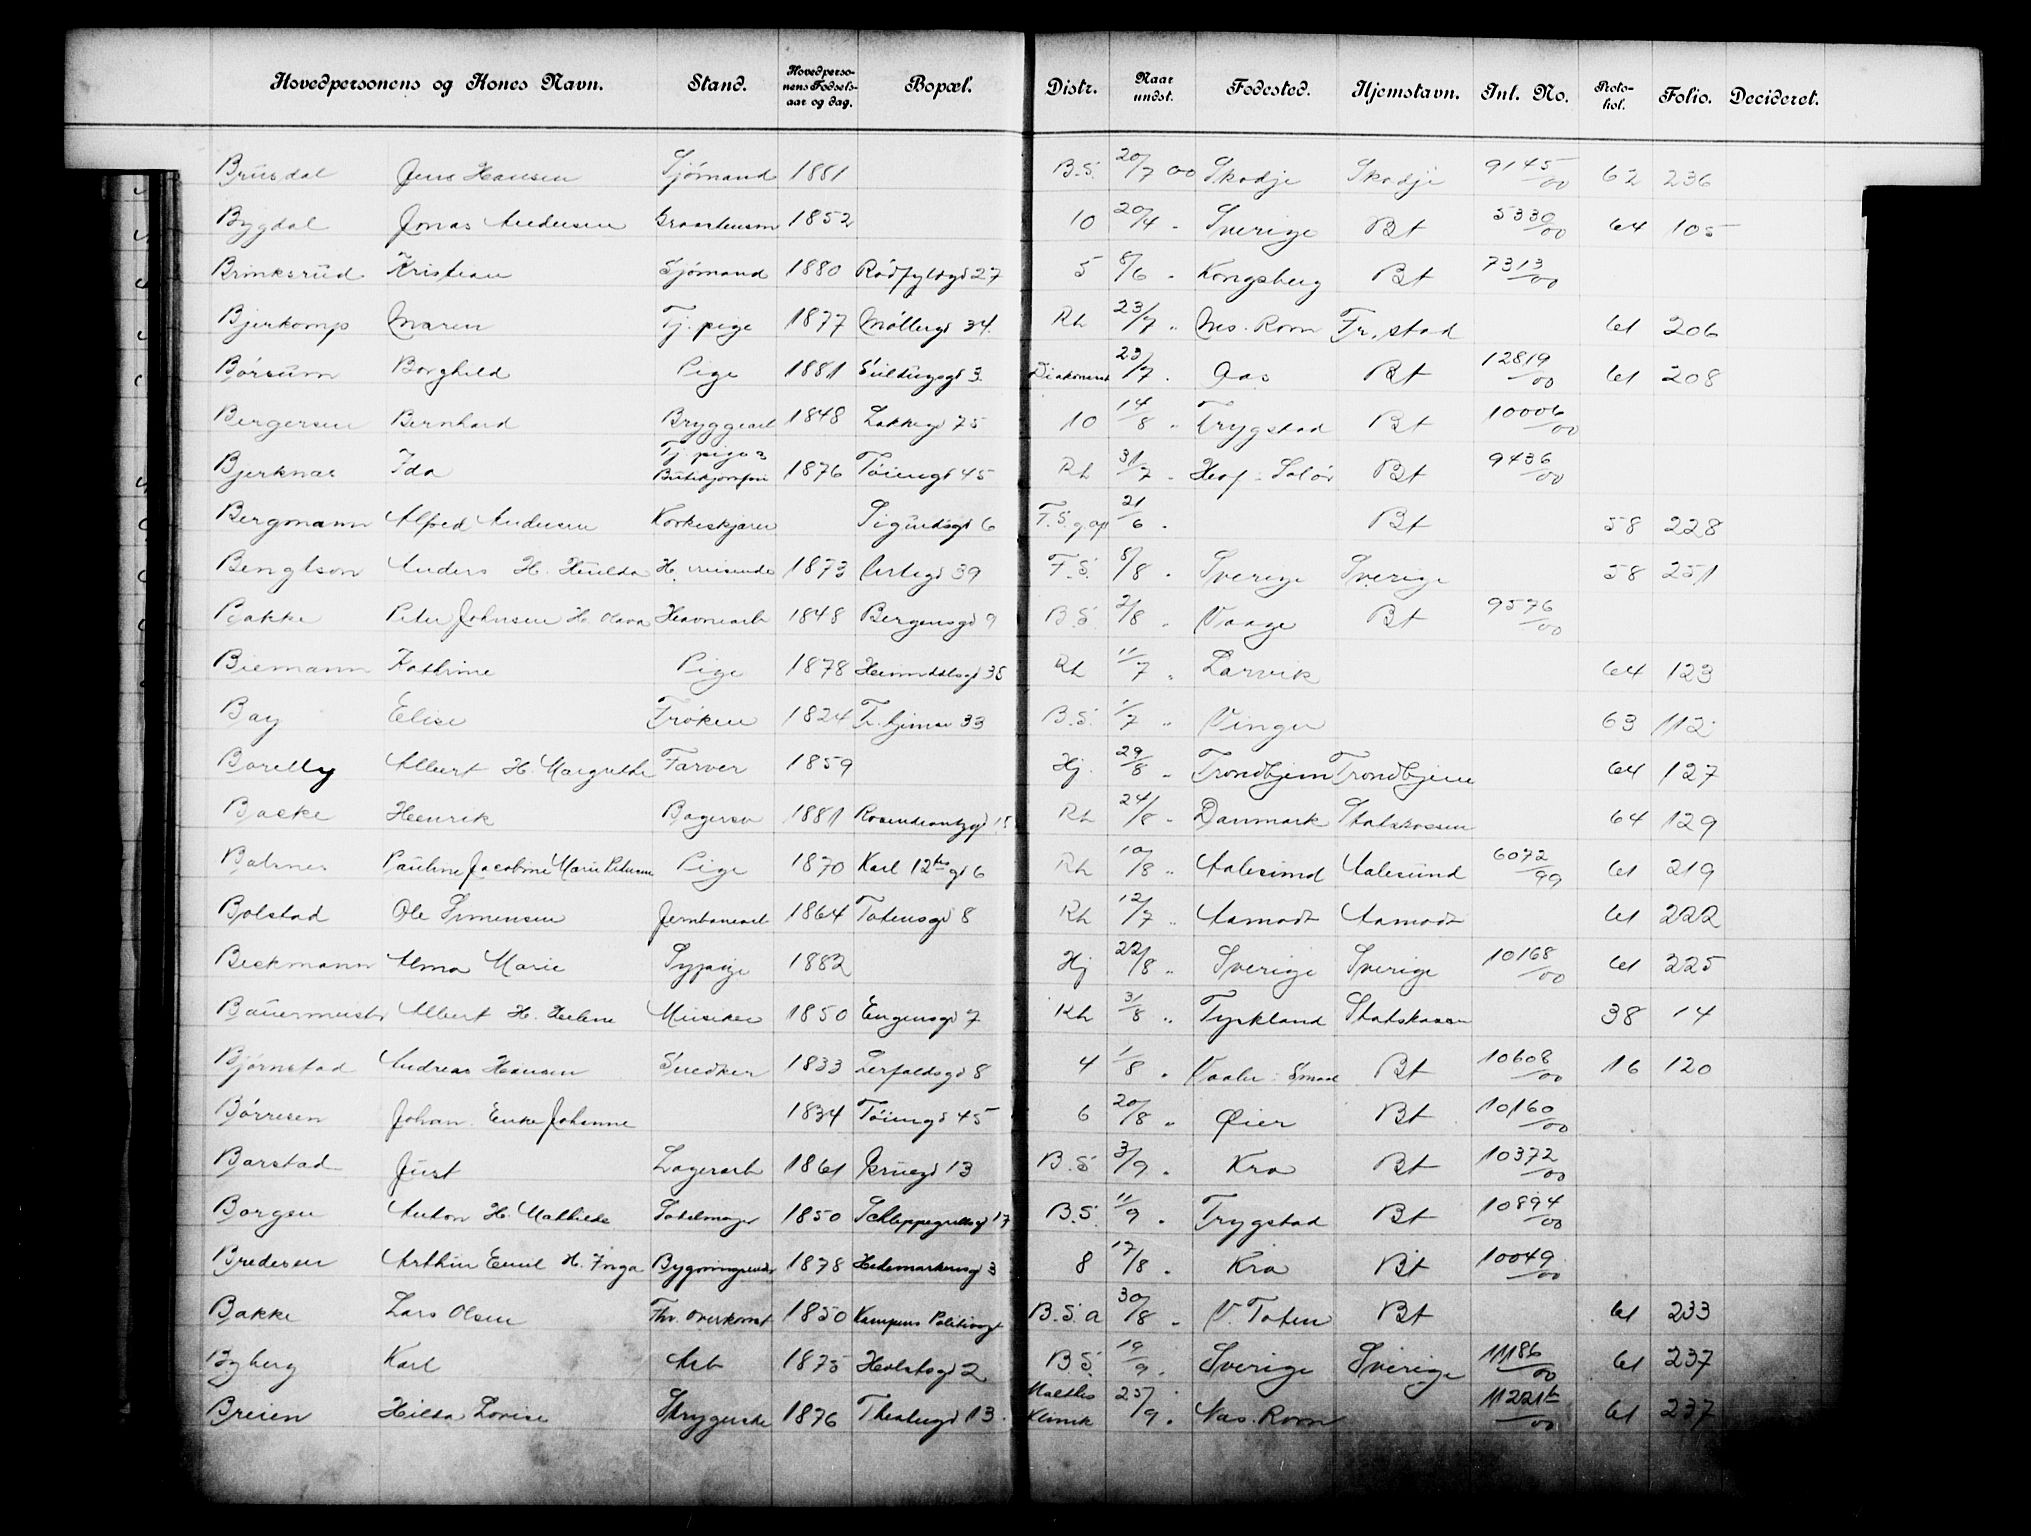 Hovedpersonens og Kones Navn. Stand. Hovedpersonens Fødselsaar og dag. Bopæl. Distr. Naar undst. Fødested. Hjemstavn. Int. No. Protokol. Folio. Decideret.
Brusdal Jens Hansen Sjømand 1881 B.S. 20/7 00 Skodje Skodje 9145/00 62 236
Bygdal Jonas Andersen 1852 10 20/4 " Sverige Bt 5330/00 64 105
Brinksrud Kristian Sjømand 1880 Rødfyldgd 27 5 8/6 " Kongsberg Bt 7313/00
Bjerkomp Maren Tj. pige 1877 Møllergd 34. Rh 23/7 " Nes. Rom Fr.stad 61 206
Børsum Borghild Pige 1881 3 Diakoness 23/7 " Aas Bt 12819/00 61 208
Bergersen Bernhard Bryggearb 1848 Lakkegd 75 10 14/8 " Trygstad Bt 10006/00
Bjerknæs Ida Tj. pige 1876 Tøiengd 45 Rh 31/7 " Hof. Solør Bt 9436/00
Bergmann Alfred Andersen Korkeskjærer Sigurdsgd 6 F.S. 21/6 " Bt 58 228
Bengtson Anders H. Hulda H. reisende 1873 39 F.S. 8/8 " Sverige Sverige 58 251
Bakke Peter Johnsen H. Olava Havnearb 1848 Bergensgd 9 B.S. 2/8 " Vaage Bt 9576/00
Biemann Kathrine Pige 1878 Heimdalsgd 35 Rh 11/7 " Larvik 64 123
Bay Elise Frøken 1824 33 B.S. 1/7 " Vinger 63 112
Borelly Albert H. Margrethe Farver 1859 Hj. 29/8 " Trondhjem Trondhjem 64 127
Backe Henrik Bagersv 1881 15 Rh 24/8 " Danmark Statskassen 64 129
Balsnes Pauline Jacobine Marie Petersen Pige 1870 Karl 12tes gd 6 Rh 10/8 " Aalesund Aalesund 6072/99 61 219
Bolstad Ole Simensen Jernbanearb 1864 Totensgd 8 Rh 12/7 " Aamodt Aamodt 61 222
Beckmann Alma Marie Sypige 1882 Hj 22/8 " Sverige Sverige 10168/00 61 225
Bauermeister Albert H. Helene Musiker 1850 Eugensgd 7 Rh 31/8 " Tyskland Statskassen 38 14
Bjørnstad Andreas Hansen Snedker 1833 Lerfaldsgd 8 4 1/8 " Vaaler. Smaal Bt 10608/00 16 120
Børresen Johan. Enke Johanne 1834 Tøiengd 45 6 20/8 " Øier Bt 10160/00
Barstad Just Lagerarb 1861 Bruegd 13 B.S. 3/9 " Kra Bt 10372/00
Borgen Anton H. Mathilde Salmager 1850 Schleppegrellsgd 17 B.S. 11/9 " Trygstad Bt 10894/00
Bredesen Arthur Emil H. Inga 1878 Hedemarkensgd 3 8 17/8 " Kra Bt 10049/00
Bakke Lars Olsen Fhv. overkonst 1850 Kampens Politivagt B.S. a 30/8 " V. Toten Bt 61 233
Byberg Karl Arb 1875 Holstsgd 2 B.S. 19/9 " Sverige Sverige 11186/00 61 237
Breien Hilda Lovise Strygerske 1876 Theatergd 13. Malthes Klinik 25/9 " Næs. Rom 11221b/00 61 237